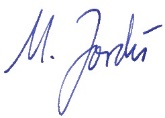 M. Jordis